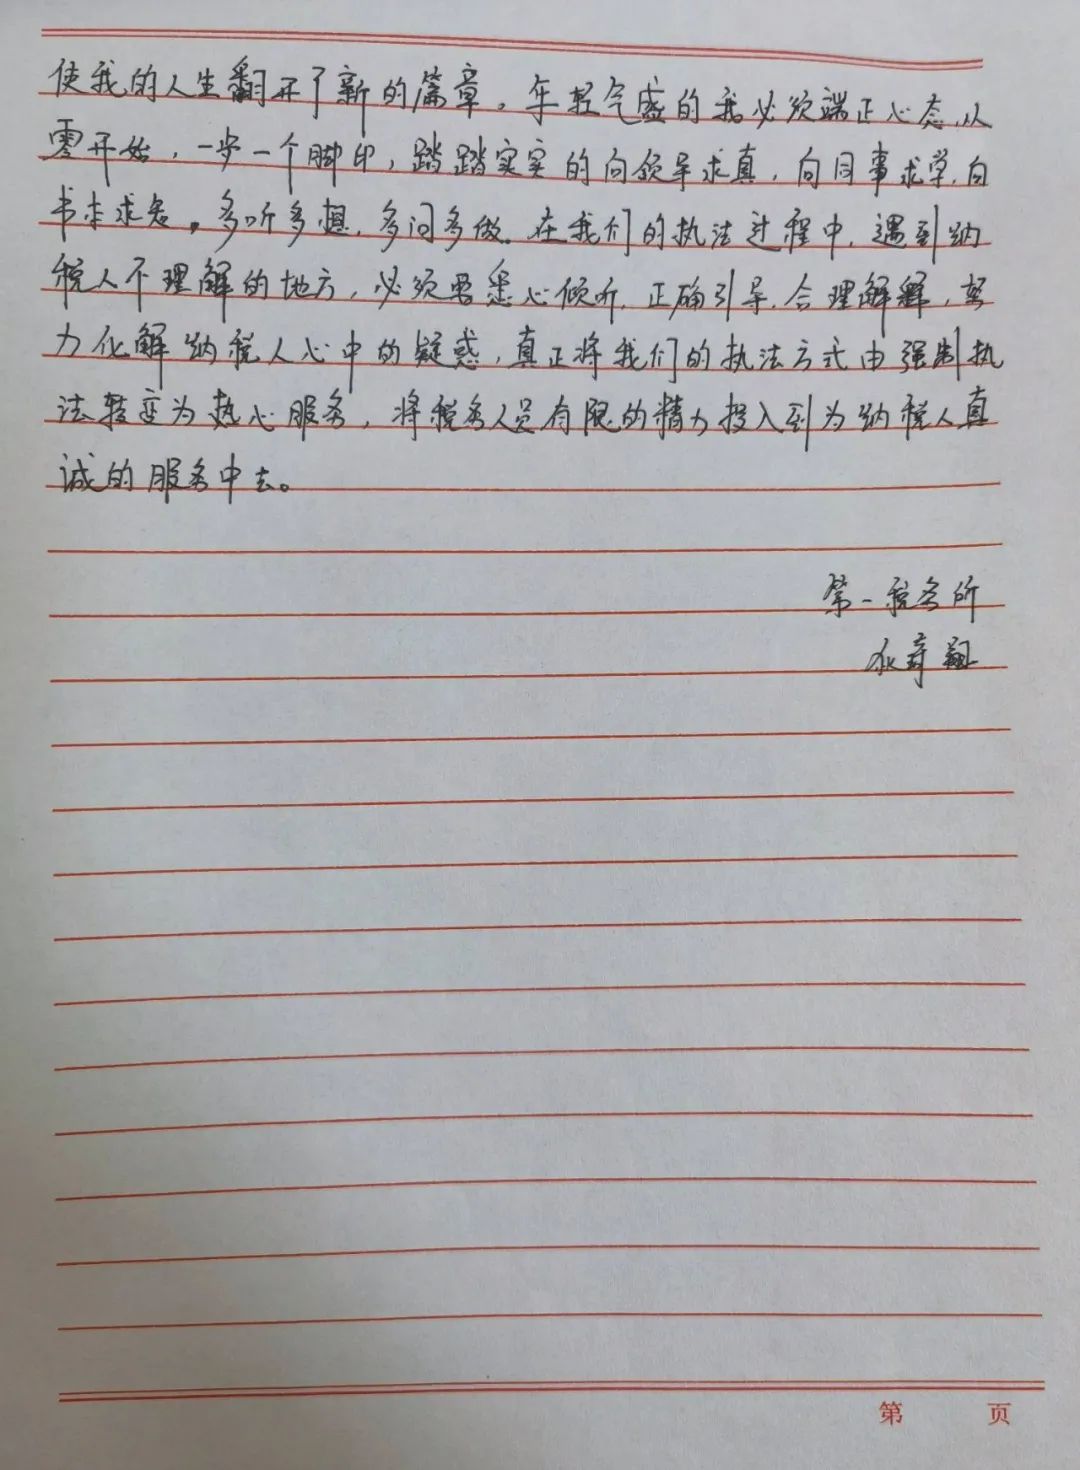 使我的人生翻开了新的篇章。年轻气盛的我必须端正心态,从
零开始，一步一个脚印，踏踏实实的向领导求真，向同事求学,向
书本求知。多听多想,多问多做。在我们的执法过程中,遇到纳
税人不理解的地方，必须要悉心倾听,正确引导,合理解释,努
力化解纳税人心中的疑惑，真正将我们的执法方式由强制执
法转变为热心服务，将税务人员有限的精力投入到为纳税人真
诚的服务中去。
第一税务所
第 页